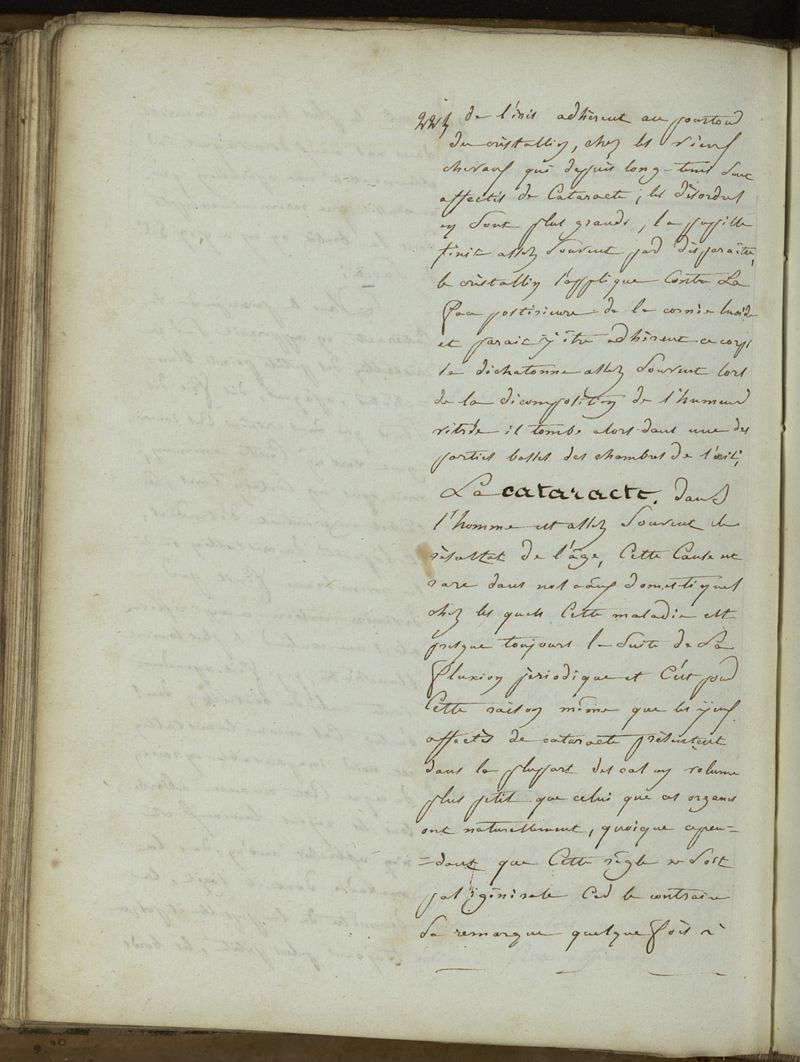 de l'iris adhèrent au pourtour
du cristallin, chez les vieux
chevaux qui depuis long-tems sont
affectés de Cataracte, les désordres
en sont plus grands, la pupille
finit assez souvent par disparaître,
le cristallin s'applique contre La
face postérieure de la cornée lucide
et parait y être adhèrent ce corps
se déchatonne assez souvent lors
de la décomposition de l'humeur
vitrée il tombe alors dans une des
parties basses des chambres de l'œil;
La cataracte. dans
l'homme est assez souvent le
résultat de l'âge, Cette Cause est
rare dans nos domestiques
chez les quels Cette maladie est
presque toujours la suite de La
fluxion périodique et C'est pour
Cette raison même que les yeux
affectés de cataracte présentent
dans la plupart des cas un volume
plus petit que celui que ces organes
ont naturellement, quoique cepen=
=dant que Cette règle ne soit
pas générale Car le contraire
se remarque quelque fois à